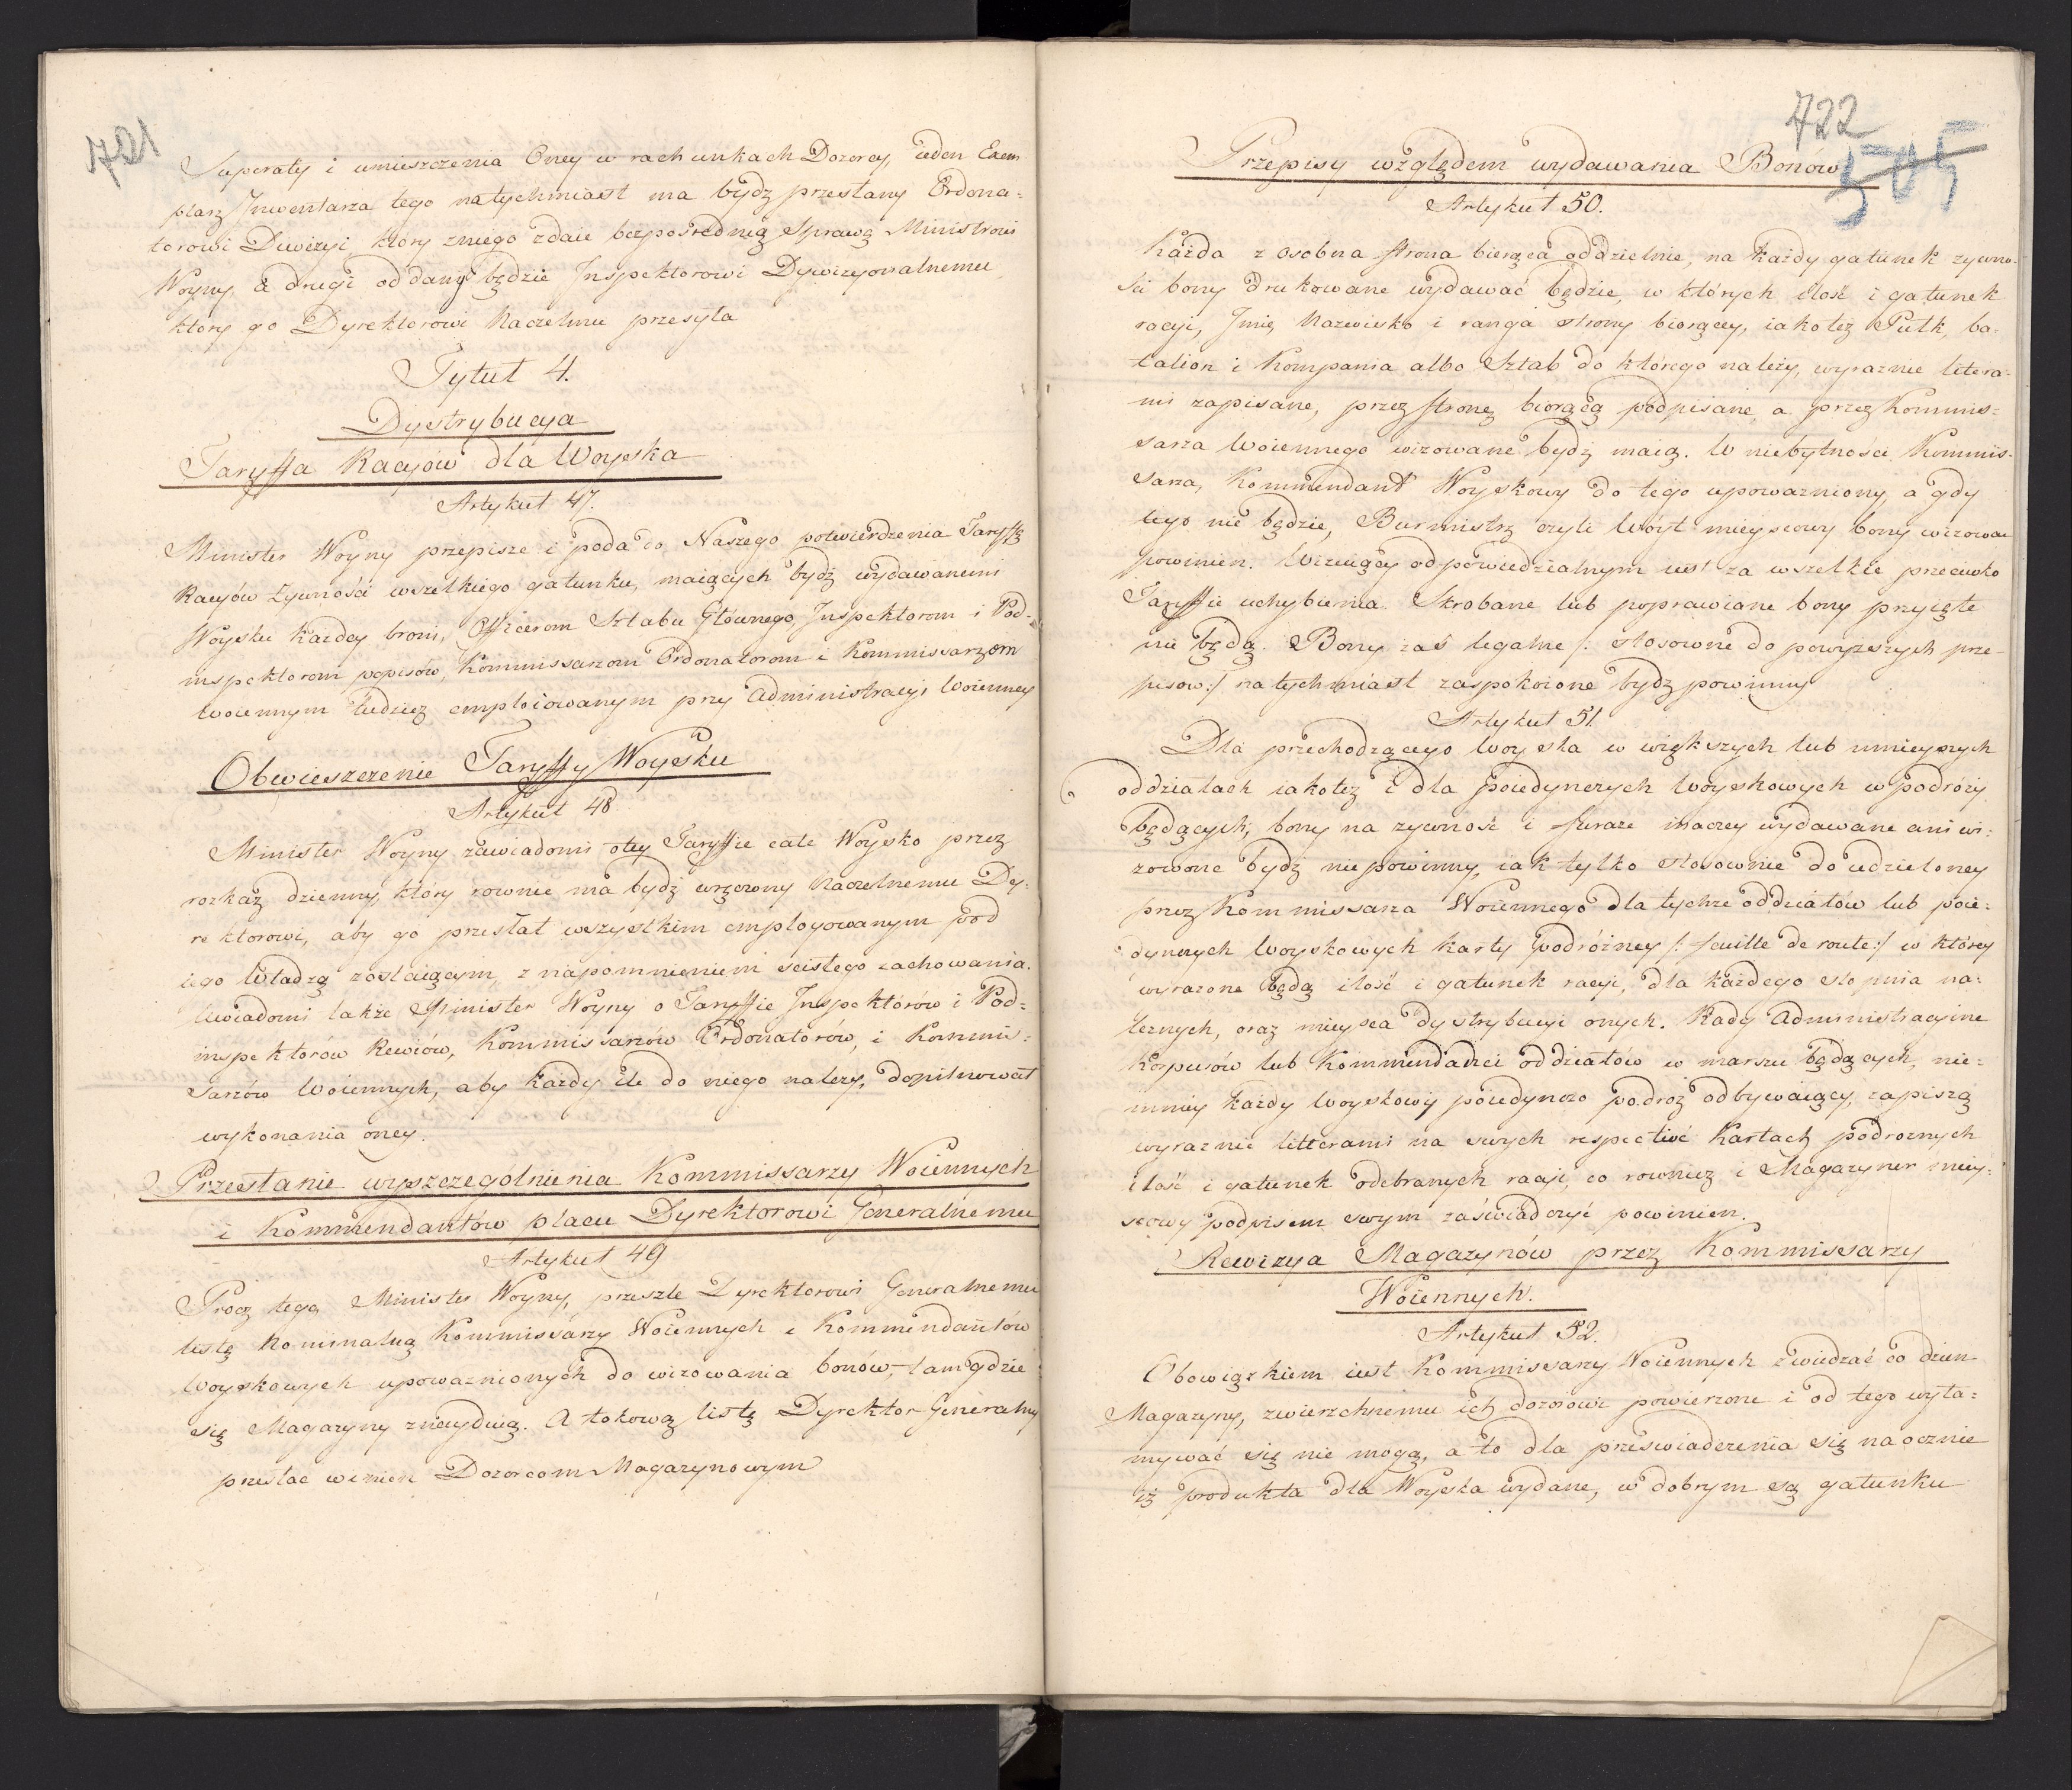 721
Superaty i umieszczenia Oney w rachunkach Dozorcy, ieden Exem
plarz Inwentarza tego natychmiast ma bydz przesłany Ordona=
torowi Diwizyi który zniego zdaie bezpośrednią Sprawę Ministrowi
Woyny, a drugi oddany będzie Inspektorowi Dywizyonalnemu
który go Dyrektorowi Naczelnu przesyła
Tytuł 4.
Dystrybucya
Taryffa Racyów dla Woyska
Artykuł 47.
Minister Woyny przepisze i poda do Naszego potwierdzenia Taryffę
Racyów Żywności wszelkiego gatunku, maiących bydź wydawanemi
Woysku każdey broni, Officerom Sztabu Głównego, Inspektorom i Pod-
inspektorom popisów, Kommissarzom Ordonatorom i Kommissarzom
Woiennym tudzież emploiowanym przy Administracyi Woienney
Obwieszczenie Taryffy Woysku
Artykuł 48
Minister Woyny zawiadomi otey Taryffie całe Woysko przez
rozkaz dzienny, który rownie ma bydź wręczony Naczelnemu Dy=
rektorowi, aby go przesłał wszystkim employowanym pod
iego Władzą zostaiącym, z napomnieniem scisłego zachowania.
Uwiadomi także Minister Woyny o Taryffie Inspektorów i Pod=
inspektorów Rewiów, Kommissarzów Ordonatorów, i Kommis=
sarzów Woiennych, aby każdy ile do niego należy, dopilnował
wykonania oney.
Przesłanie wyszczególnienia Kommissarzy Woiennych
i Kommendantów placu Dyrektorowi Generalnemu
Artykuł 49
Procz tego Minister Woyny, przeszle Dyrektorowi Generalnemu
listę Nominalną Kommissarzy Woiennych i Kommendantów
Woyskowych upoważnionych do wizowania bonów, tam gdzie
się Magazyny znaydują. A takową listę Dyrektor Generalny
przesłac winien Dozorcom Magazynowym
722
505
Przepisy względem wydawania Bonów
Artykuł 50.
Każda z osobna strona bierząca oddzielnie, na każdy gatunek zywno=
ści bony drukowane wydawać będzie, w których ilość i gatunek
racyi, Imię Nazwisko i ranga strony biorącey, iakoteż Pułk, ba=
talion i Kompania albo Sztab do którego należy, wyraznie litera=
mi zapisane, przez stronę biorącą podpisane, a przez Kommis=
sarza Woiennego wizowane bydź maią. W niebytnosci Kommis=
sarza, Kommendant Woyskowy do tego upoważniony, a gdy
tego nie będzie, Burmistrz czyli Wóyt mieyscowy bony wizowac
powinien. Wizuiący odpowiedzialnym iest za wszelkie przeciwko
Taryffie uchybienia. Skrobane lub poprawiane bony przyięte
nie będą. Bony zaś legalne /: stosowne do powyższych prze=
pisow :/ natychmiast zaspokoione bydź powinny
Artykuł 51.
Dla przechodzącego Woyska w większych lub mnieyszych
oddziałach iakotez i dla poiedynczych Woyskowych w podróży
będących, bony na zywność i furaze inaczey wydawane ani wi=
zowane bydź nie powinny, iak tylko stosownie do udzieloney
przez Kommissarza Woiennego dla tychże oddziałów lub poie=
dynczych Woyskowych Karty podróżney /: feuille de route :/ w którey
wyrażone będą ilość i gatunek racyi, dla każdego stopnia na=
leznych, oraz mieysca dystrybucyi onych. Rady Administracyine
Korpusów lub Kommendanci oddziałów w marszu będących, nie=
mniey każdy Woyskowy poiedynczo podroż odbywaiący, zapiszą
wyraznie litterami na swych respective Kartach podroznych
ilość i gatunek odebranych racyi, co rowniez i Magazynier miey=
scowy podpisem swym zaświadczyć powinien.
Rewizya Magazynów przez Kommissarzy
Woiennych.
Artykuł 52.
Obowiązkiem iest Kommissarzy Woiennych zwiedzać co dzien
Magazyny, zwierzchniemu ich dozorowi powierzone i od tego wyła=
mywać się nie mogą, a to dla przeswiadczenia się naocznie
iż produkta dla Woyska wydane, w dobrym są gatunku